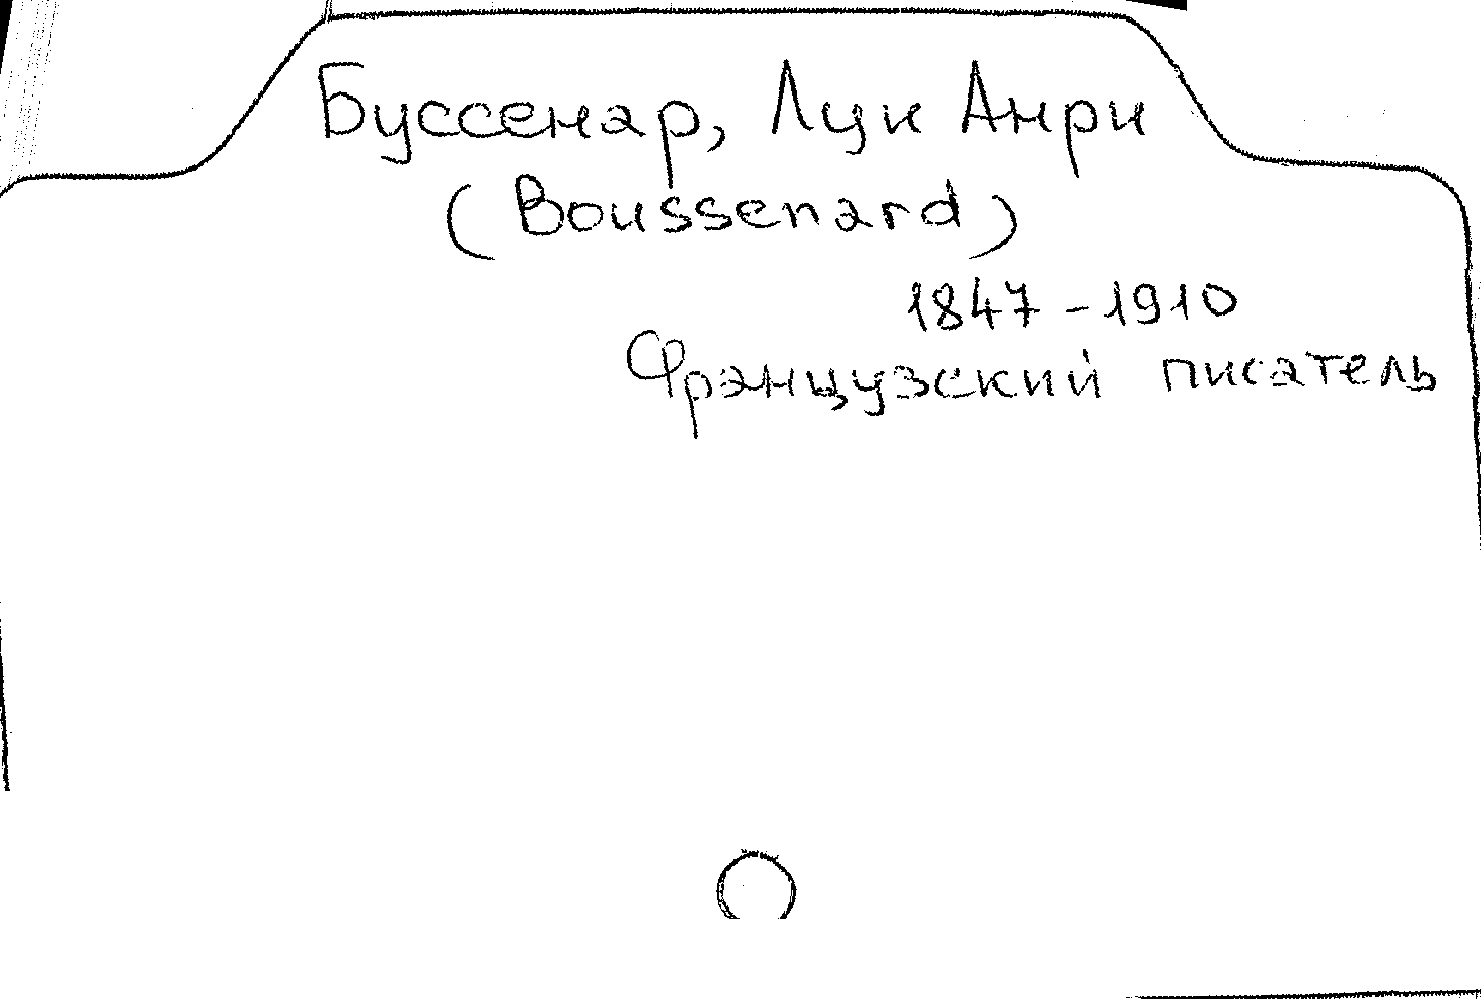 Буссенар, Луи Анри
(Boussenard)
1847-1910
Французский писатель